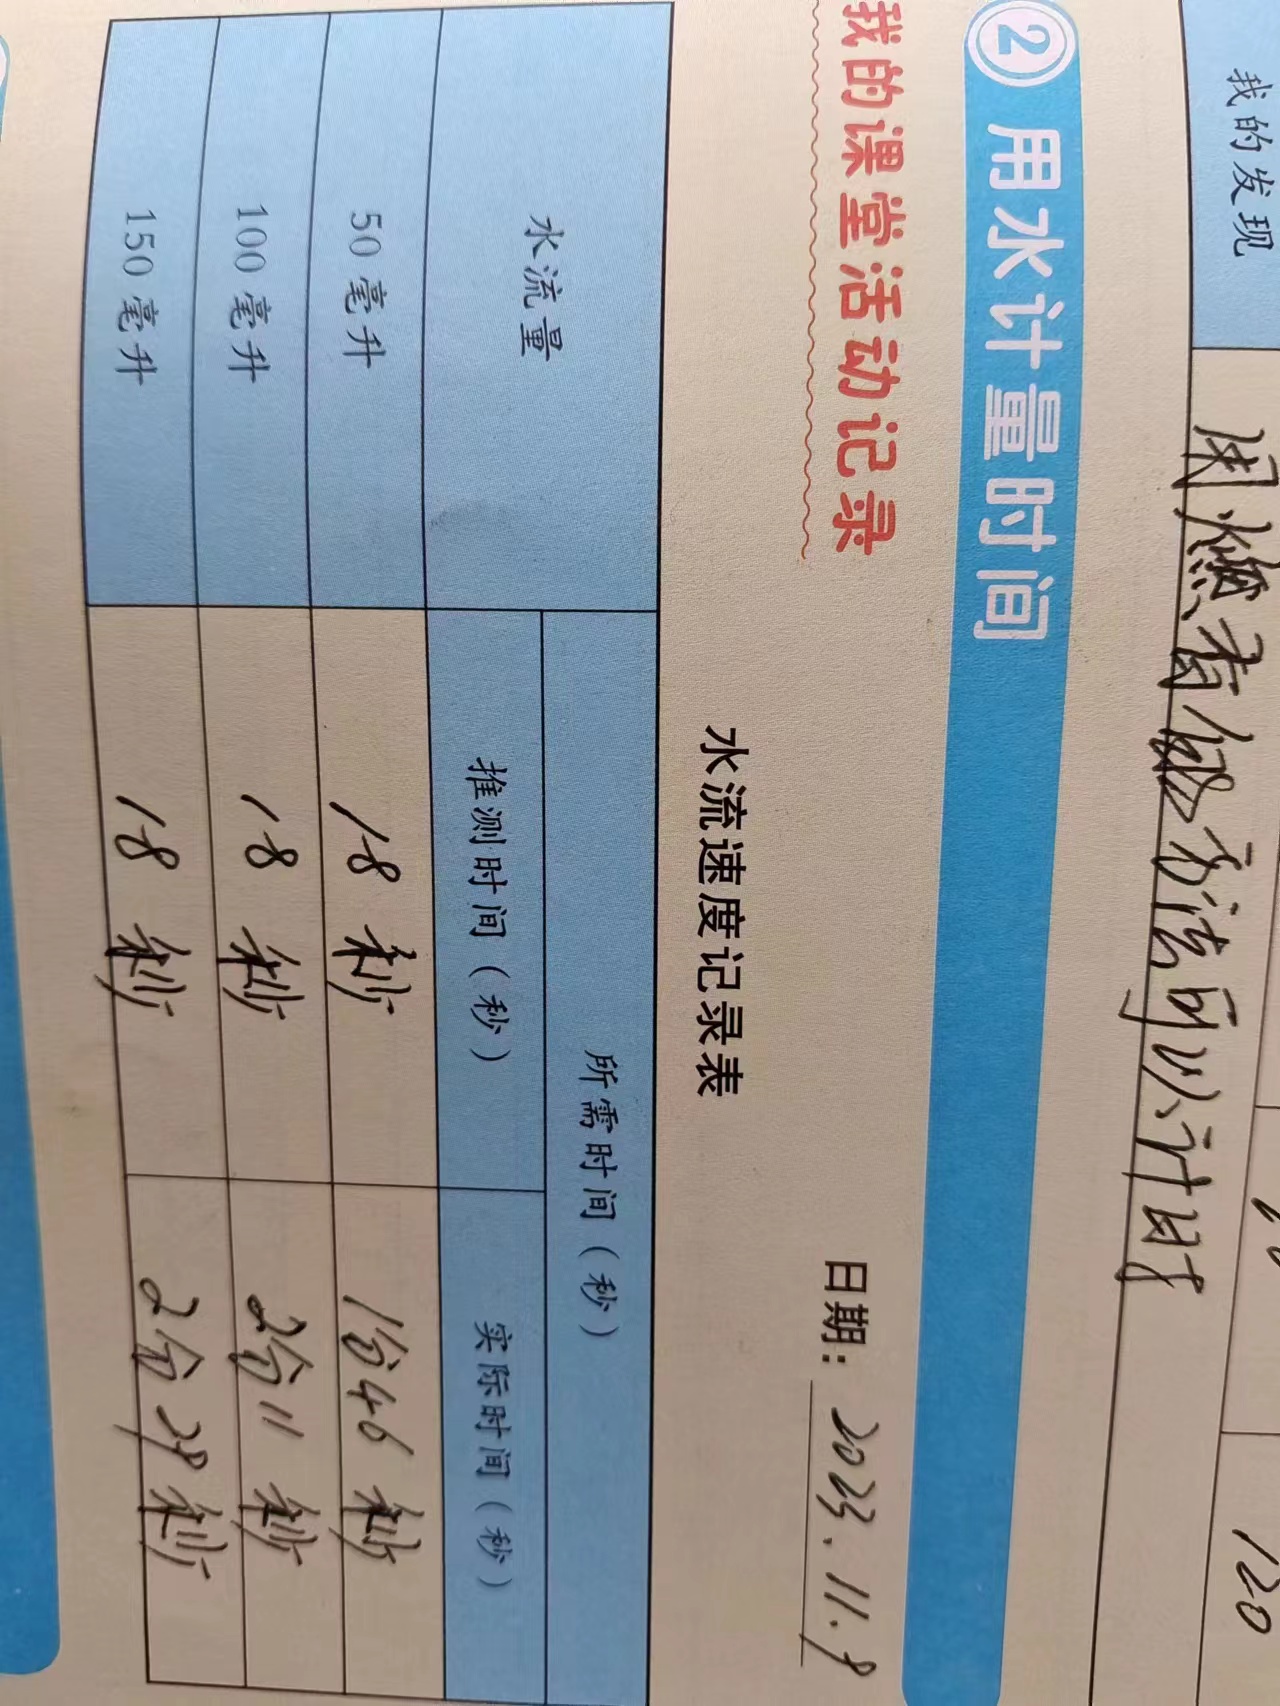 我的发现 用燃香的方法可以计时
120
2 用水计量时间
我的课堂活动记录
日期：2023.11.8
水流速度记录表
水流量 所需时间（秒）
推测时间（秒） 实际时间（秒）
50毫升 18秒 1分46秒
100毫升 18秒 2分11秒
150毫升 18秒 2分29秒